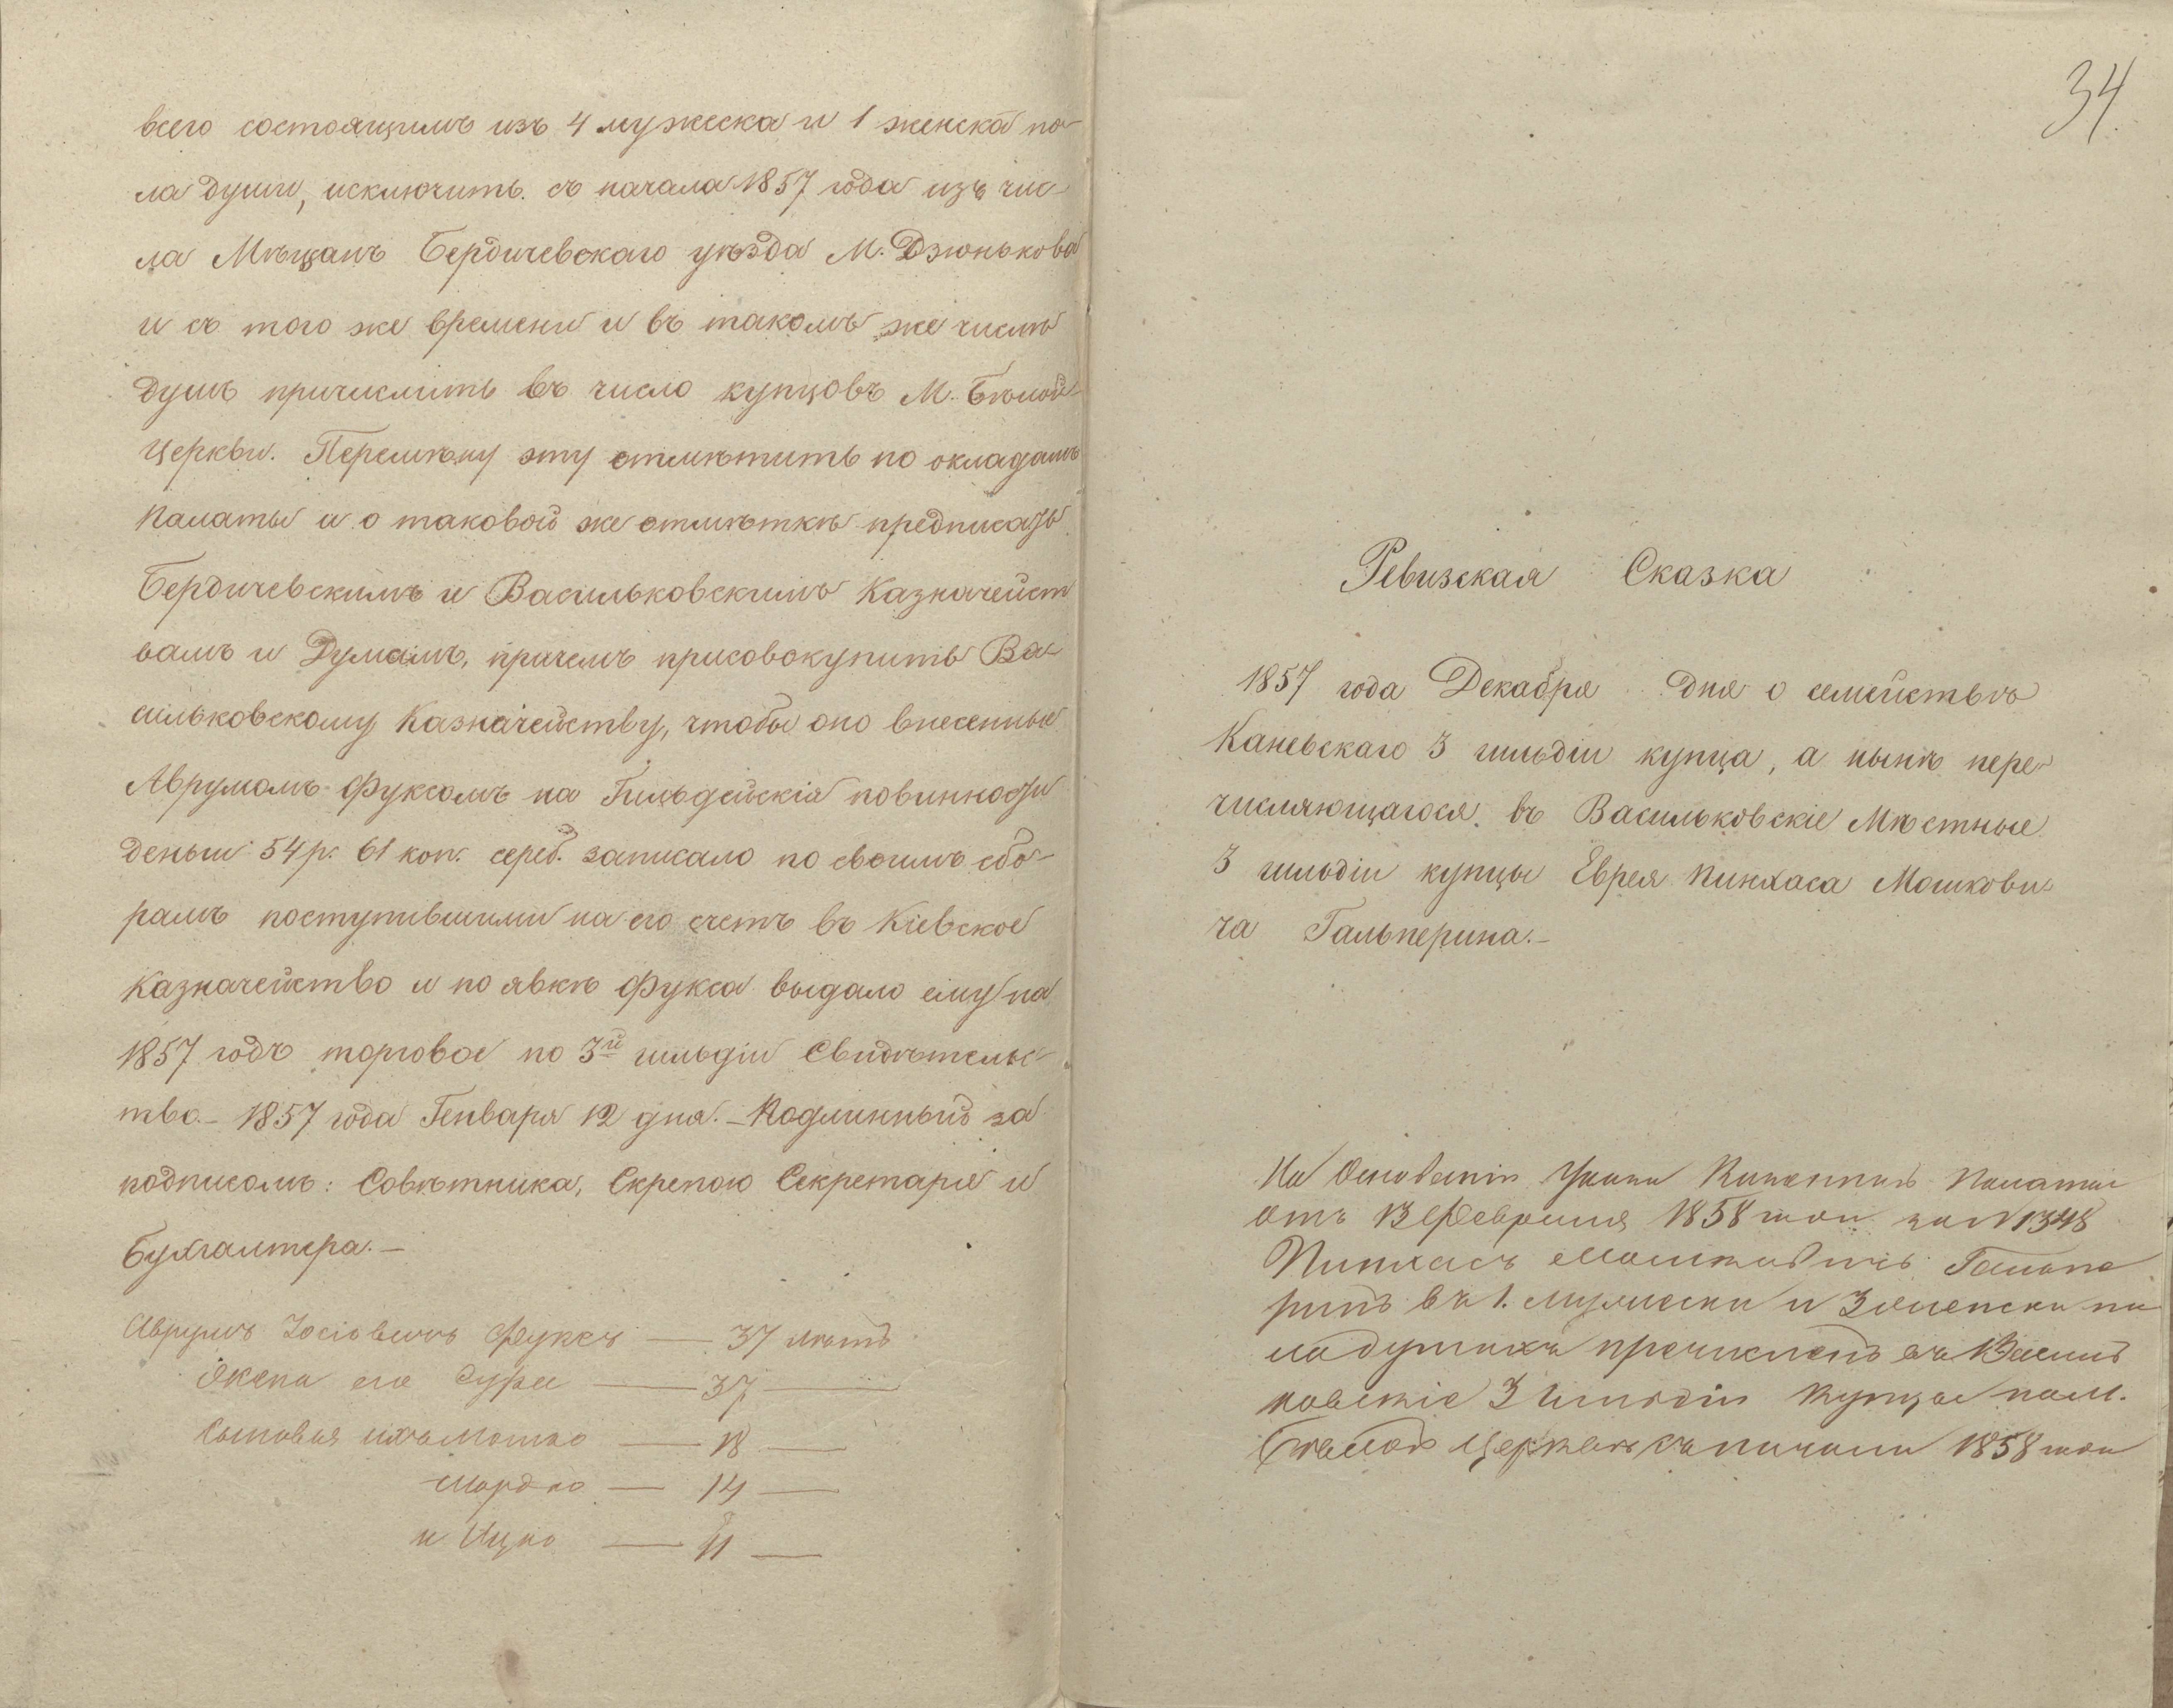 всего состоящимъ изъ 4 мужеска и 1 женска по-
ла души, исключить съ начала 1857 года изъ чис-
ла Мѣщанъ Бердичевскаго уѣзда М. Дзюнькова
и съ того же времени и въ такомъ же числѣ
душъ причислить въ число купцовъ М. Бѣлой-
Церкви. Перемѣну эту отмѣтить по окладамъ
Палаты и о таковой же отмѣткѣ предписать
Бердичевскимъ и Васильковскимъ Казначейст
вамъ и Думамъ, причемъ присовокупить Ва-
сильковскому Казначейству, чтобы оно внесенные
Аврумомъ Фуксомъ на Гильдейскія повинности
деньги 54 р. 61 коп. сереб. записало по своимъ сбо-
рамъ поступившими на его счетъ въ Кіевское
Казначейство и по явкѣ Фукса выдало ему на
1857 годъ торговое по 3й гильдіи Свидѣтельс-
тво.- 1857 года Генваря 12 дня.- Подлинный за
подписомъ: Совѣтника, Скрепою Секретаря и
Бухгалтера.-
Аврумъ Іосіовичъ Фуксъ — 37 лѣтъ
Жена его Сура — 37 —
Сыновья ихъ Мошко — 18 —
Мордко — 14 —
и Ицко — 11 —
34
Ревизская Сказка
1857 года Декабря дня о семействѣ
Каневскаго 3 гильдіи купца, а нынѣ пере-
числяющагося въ Васильковскіе Мѣстные
3 гильдіи купцы Еврея Пинхаса Мошкови-
ча Гальперина.-
На Основаніи Указа Казенной Палаты
отъ 13 Февраля 1858 года за N 1348
Пинхасъ Мошковичъ Гальпе
ринъ въ 1. мужеска и 3 женска по
ла душахъ причисленъ въ Василь
ковскіе 3 Гильдіи Купцы по м.
Бѣлой Церкви съ начала 1858 года